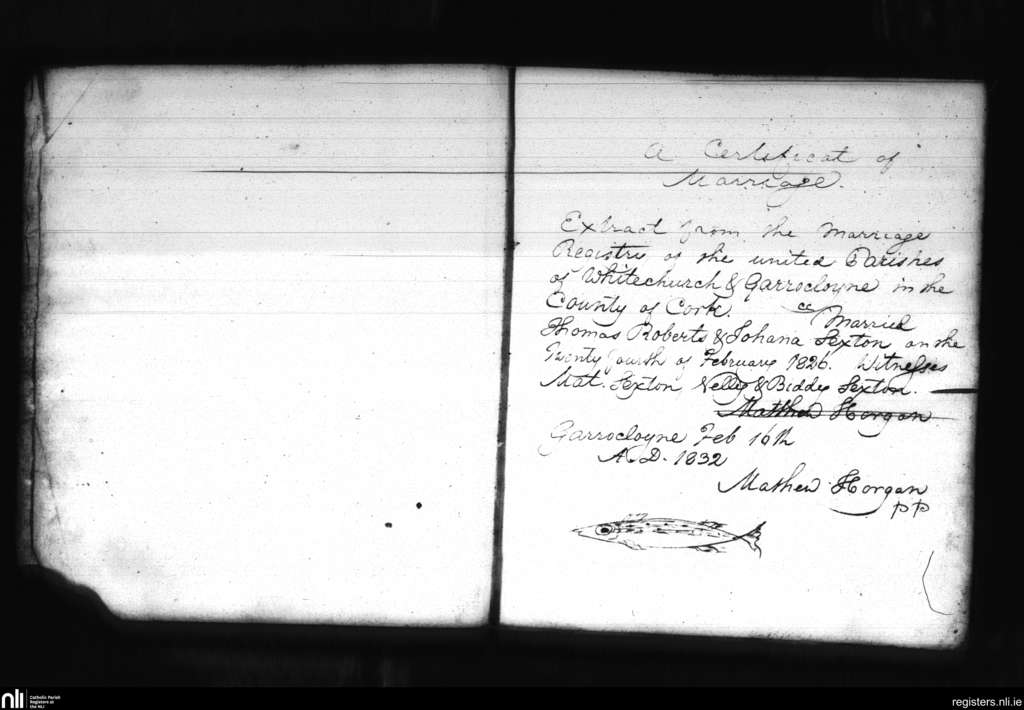 A Certificat of
Marriage.
Extract from the Marriage
Registry of the united Parishes
of Whitechurch & Garrocloyne in the
County of Cork.
Married
Thomas Roberts & Johana Sexton on the
Twenty fourth of February 1826. Witnesses
Mat. Sexton, Nelly & Biddy Sexton.
Mathew Horgan
Garrocloyne Feb 16th
A.D. 1832
Mathew Horgan
PP
nli
Catholic Parish
Registers at
the NLI
registers.nli.ie